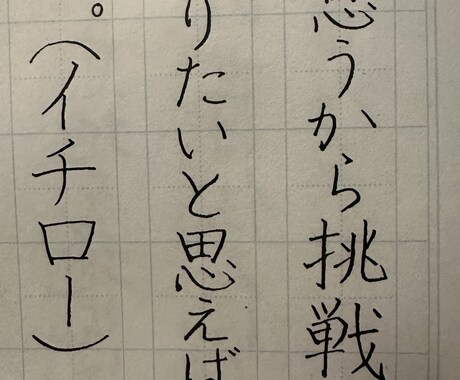 思うから挑戦
りたいと思えば
。(イチロー)